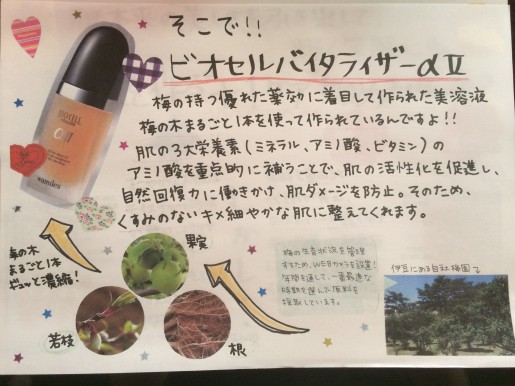 そこで!!
ビオセルバイタライザーαⅡ
梅の持つ優れた薬効に着目して作られた美溶液
梅の木まるごと1本を使って作られているんですよ!!
肌の3大栄養素(ミネラル、アミノ酸、ビタミン)の
アミノ酸を重点的に補うことで、肌の活性化を促進し、
自然回復力に働きかけ、肌ダメージを防止。そのため、
くすみのないキメ細やかな肌に整えてくれます。
梅の木
まるごと1本
ギュッと濃縮!
果実
若枝
根
梅の生育状況を管理
するため、WEBカメラを設置!
年間を通して、一番最適な
時期を選んで原料を
採取しています。
伊豆にある自社梅園